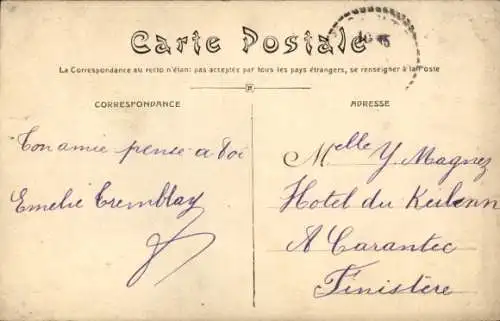 Carte Postale
La Correspondance au recto n'étant pas acceptée par tous les pays étrangers, se renseigner à la Poste
CORRESPONDANCE
Ton amie pense a toi
Emelie Tremblay
ADRESSE
Melle Y. Magnez
Hotel du
A Carantec
Finistère